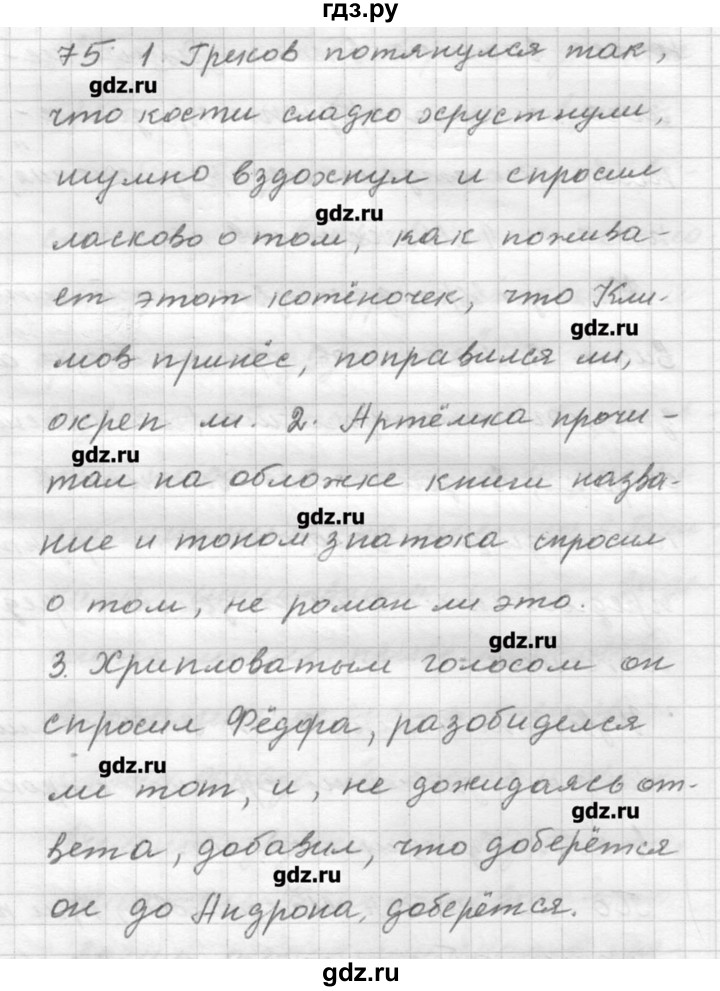 гдз.ру
75 1 Греков потянулся так,
gdz.ru
что кости сладко хрустнули,
шумно вздохнул и спросил
gdz.ru
ласково о том, как пожива-
ет этот котёночек, что Кли-
gdz.ru
мов принёс, поправился ли,
окреп ли. 2. Артёмка прочи-
gdz.ru
тал на обложке книги назва-
gdz.ru
ние и тоном знатока спросил
о том, не роман ли это.
gdz.ru
3. Хрипловатым голосом он
спросил Фёдора, разобиделся
gdz.ru
ли тот, и, не дожидаясь от-
gdz.ru
вета, добавил, что доберётся
gdz.ru
он до Андрона, доберётся.
gdz.ru